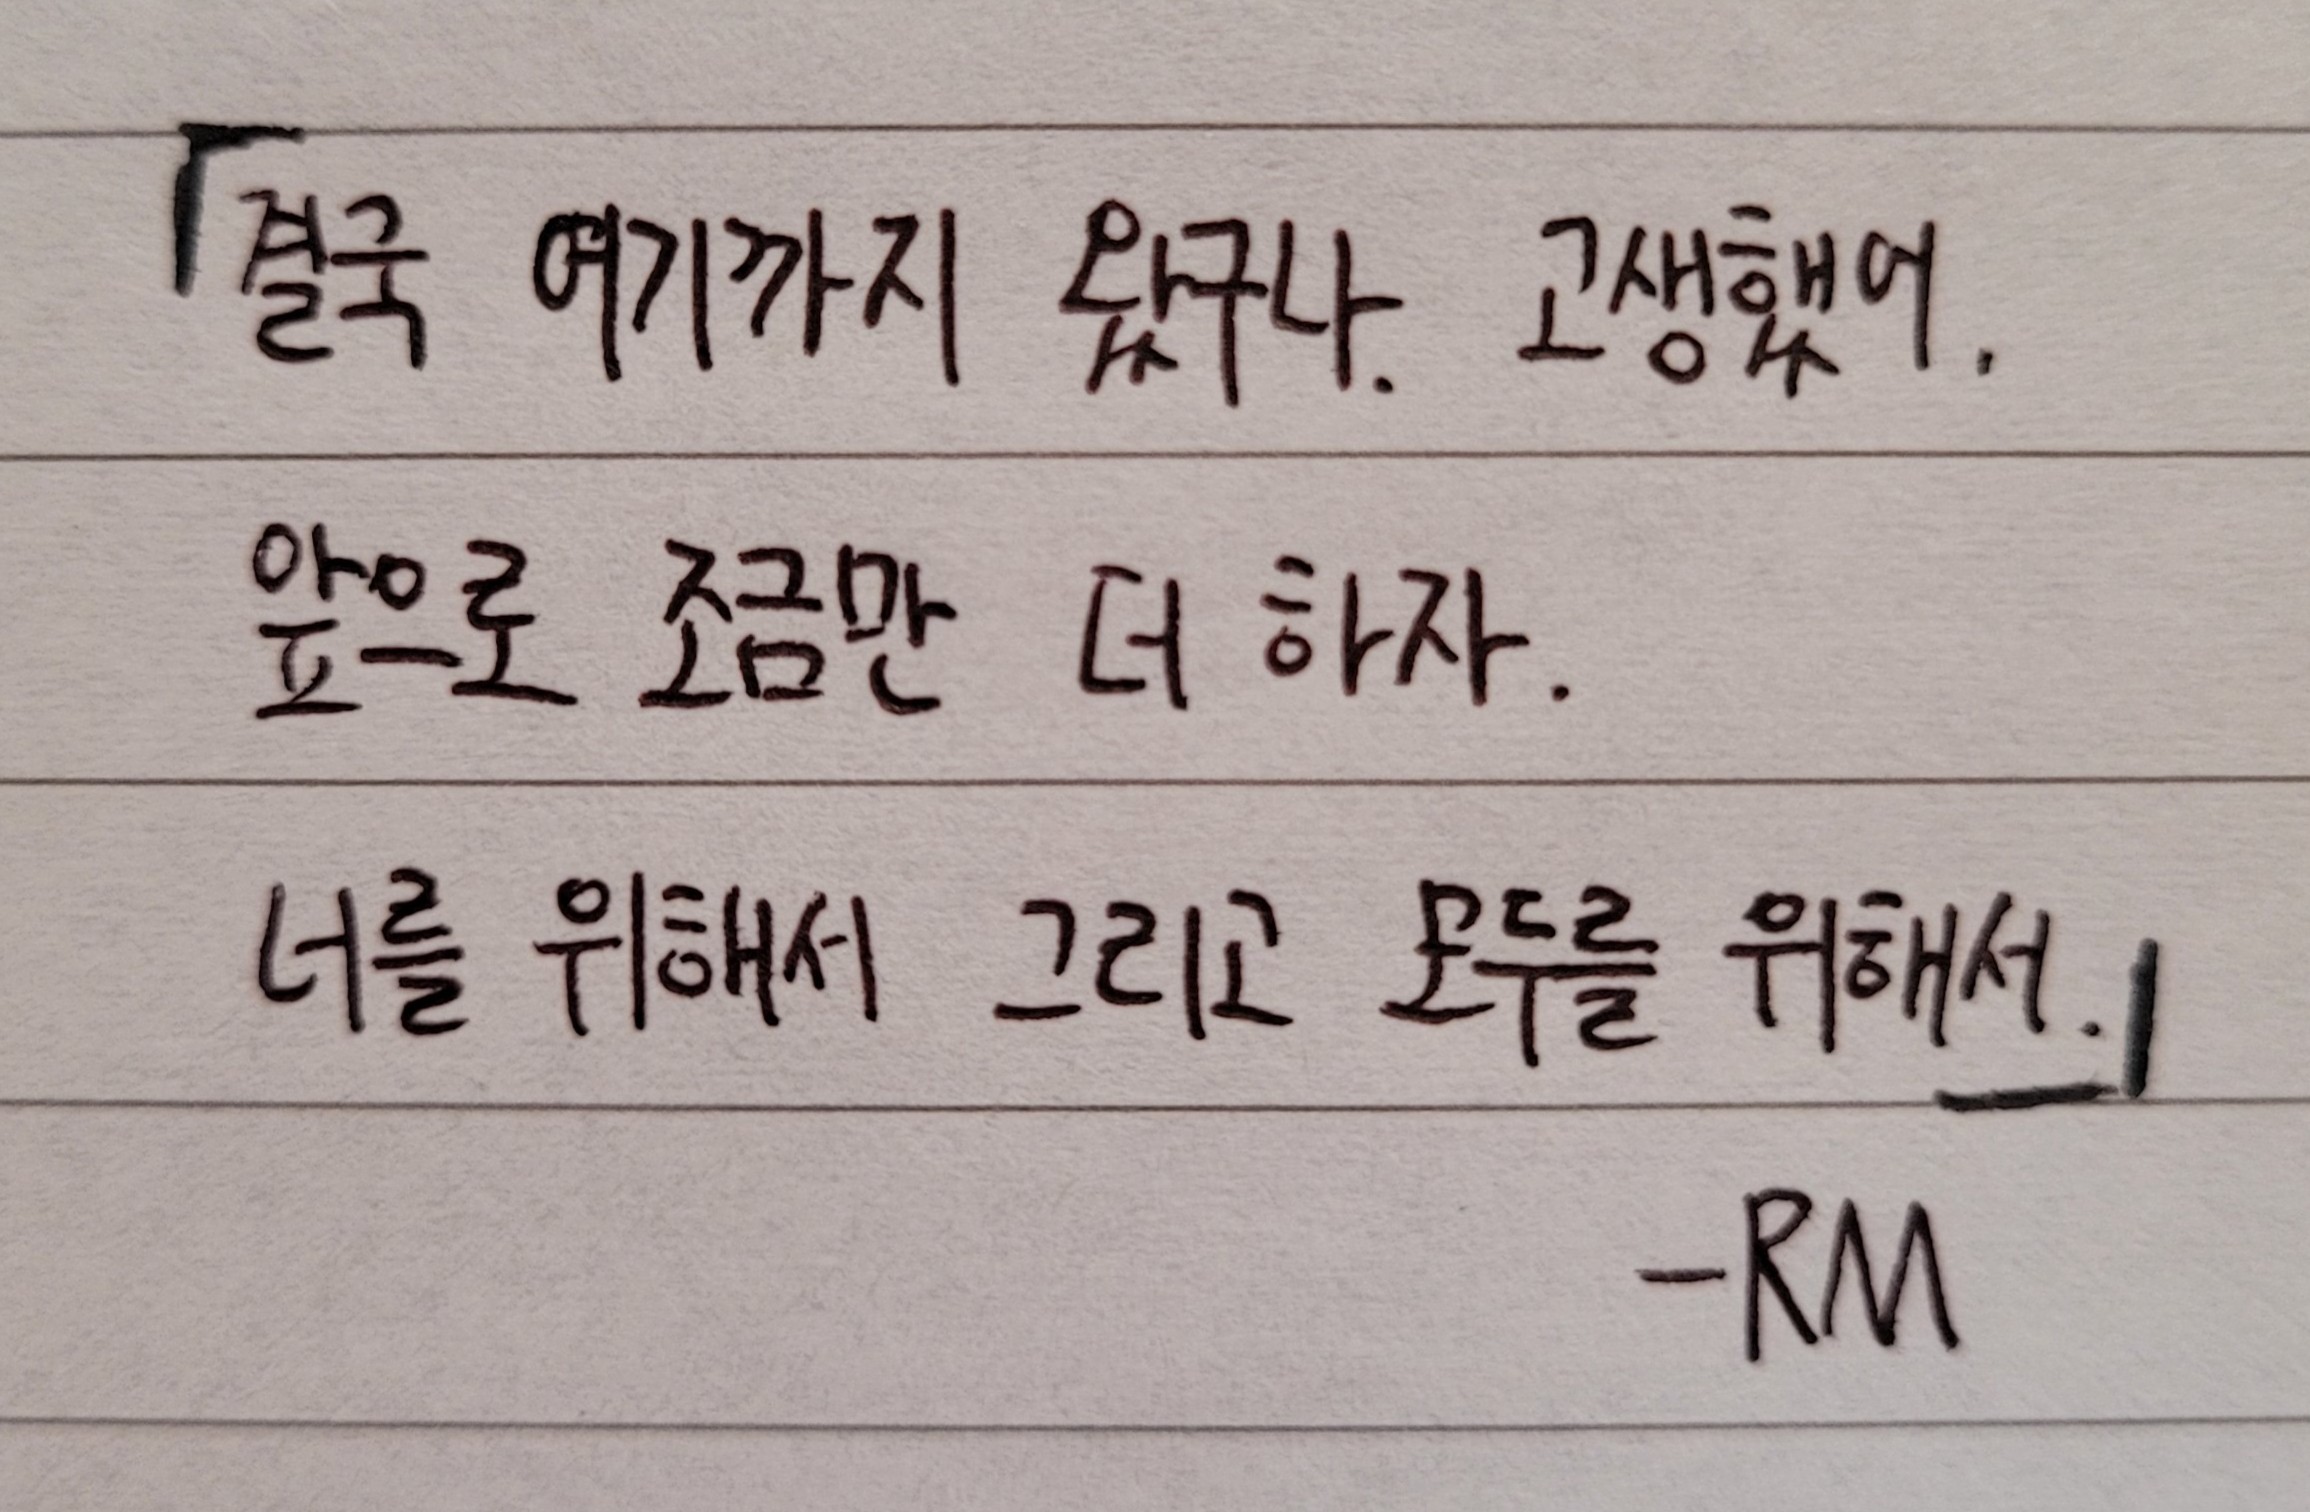 「결국 여기까지 왔구나. 고생했어.
앞으로 조금만 더 하자.
너를 위해서 그리고 모두를 위해서.」
-RM